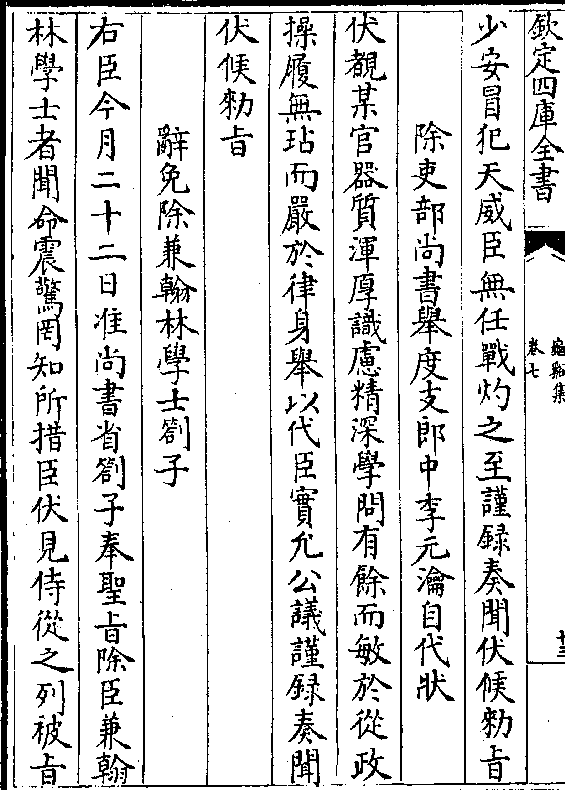 欽定四庫全書
龜谿集
卷七
十三
少安冒犯天威臣無任戰灼之至謹録奏聞伏候勑㫖
除吏部尚書舉度支郎中李元瀹自代狀
伏覩某官器質渾厚識慮精深學問有餘而敏於從政
操履無玷而嚴於律身舉以代臣實允公議謹録奏聞
伏候勑㫖
辭免除兼翰林學士劄子
右臣今月二十二日准尚書省劄子奉聖㫖除臣兼翰
林學士者聞命震驚罔知所措臣伏見侍從之列被㫖